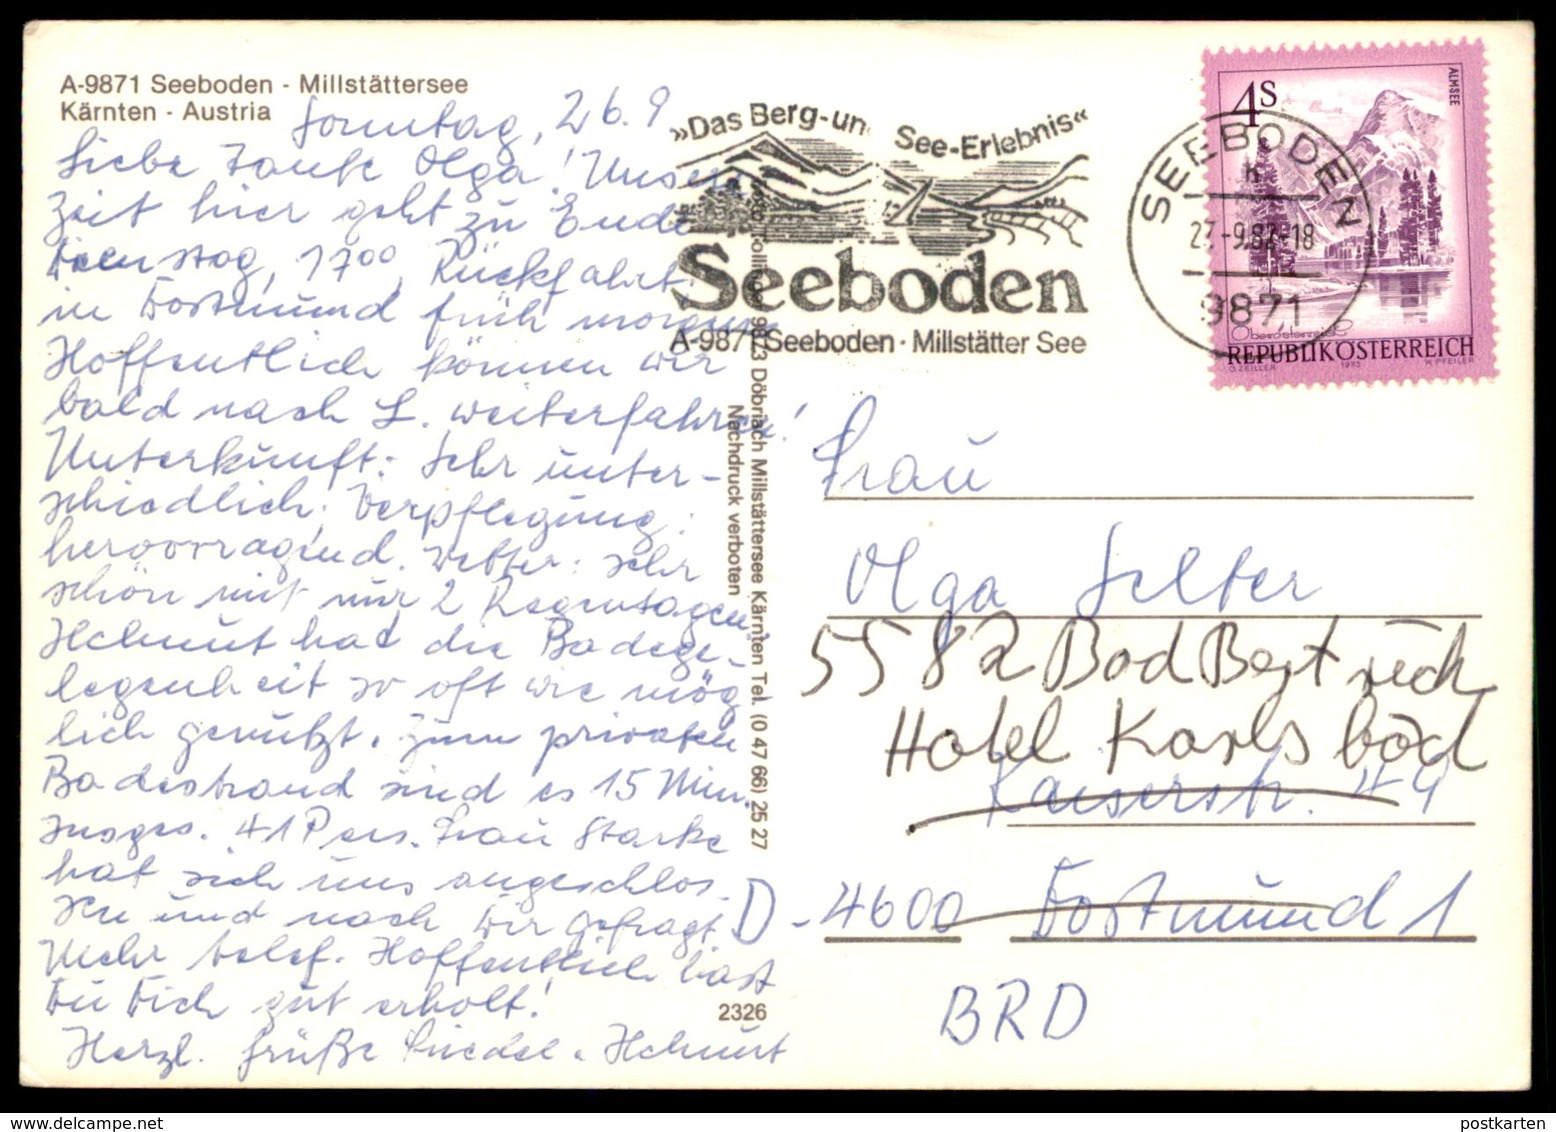 A-9871 Seeboden - Millstättersee
Kärnten - Austria
Sonntag, 26.9
Liebe Tante Olga! Unsere
Zeit hier geht zu Ende
Dienstag, 17⁰⁰, Rückfahrt.
in Dortmund früh morgens
Hoffentlich können wir
bald nach L. weiterfahren!
Unterkunft: Sehr unter-
schiedlich; Verpflegung:
hervorragend. Wetter: sehr
schön mit nur 2 Regentagen
Helmut hat die Badege-
legenheit so oft wie mög
lich genützt. Zum privaten
Badestrand sind es 15 Min.
Insges. 41 Pers. Frau Starke
hat sich uns angeschlos-
sen und nach Dir gefragt.
Mehr telef. Hoffentlich hast
Du Dich gut erholt!
Herzl. Grüße Friedel u. Helmut
9873 Döbriach Millstättersee Kärnten Tel. (0 47 66) 25 27
Nachdruck verboten
2326
»Das Berg-un See-Erlebnis«
Seeboden
A-9871 Seeboden · Millstätter See
SEEBODEN
-9.82-18
9871
4S
ALMSEE
Oberösterreich
REPUBLIK ÖSTERREICH
O. ZEILLER 1973 W. PFEILER
Frau
Olga Selter
5582 Bad Bertrich
Hotel Karlsbad
Kaiserstr. 49
D-4600 Dortmund 1
BRD
postkarten